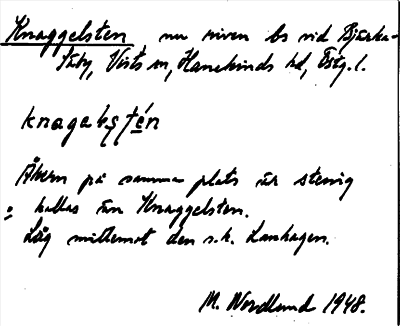 Knaggelsten nu riven bs vid Bjärka-
Säby, Vists sn, Hanekinds hd, Östg. l.
knagəlstén
Åkern på samma plats är stenig
o kallas än Knaggelsten.
Låg mittemot den s.k. Lanhagen.
M. Nordlund 1948.